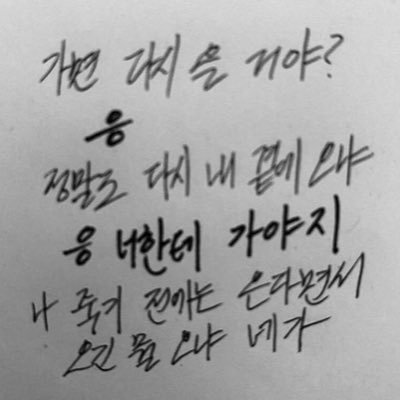 가면 다시 올 거야?
응
정말로 다시 내 곁에 오냐
응 너한테 가야지
나 죽기 전에는 온다면서
오긴 뭘 오냐 네가